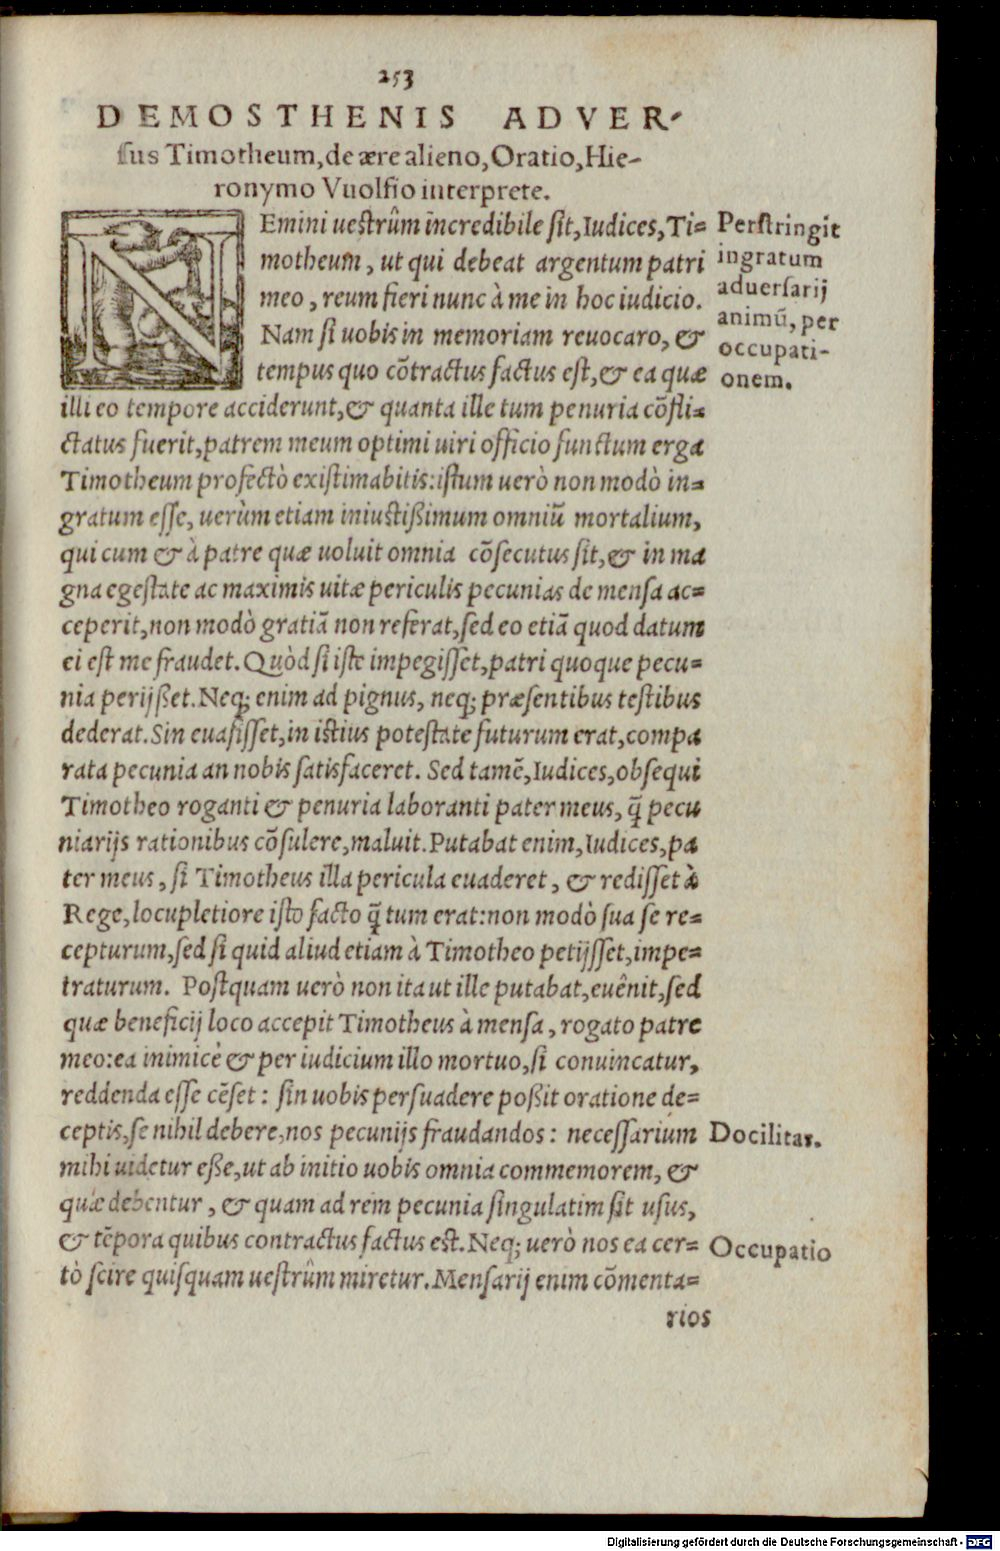 253
DEMOSTHENIS ADVER-
sus Timotheum, de ære alieno, Oratio, Hie-
ronymo Vuolfio interprete.
NEmini uestrûm incredibile sit, Iudices, Ti=
motheum, ut qui debeat argentum patri
meo, reum fieri nunc à me in hoc iudicio.
Nam si uobis in memoriam reuocaro, &
tempus quo cõtractus factus est, & ea quæ
illi eo tempore acciderunt, & quanta ille tum penuria cõfli=
ctatus fuerit, patrem meum optimi uiri officio functum erga
Timotheum profectò existimabitis: istum uerò non modò in=
gratum esse, uerùm etiam iniustißimum omniũ mortalium,
qui cum & à patre quæ uoluit omnia cõsecutus sit, & in ma
gna egestate ac maximis uitæ periculis pecunias de mensa ac=
ceperit, non modò gratiã non referat, sed eo etiã quod datum
ei est me fraudet. Quòd si iste impegisset, patri quoque pecu=
nia perijßet. Neq; enim ad pignus, neq; præsentibus testibus
dederat. Sin euasisset, in istius potestate futurum erat, compa
rata pecunia an nobis satisfaceret. Sed tamẽ, Iudices, obsequi
Timotheo roganti & penuria laboranti pater meus, q̃ pecu
niarijs rationibus cõsulere, maluit. Putabat enim, Iudices, pa
ter meus, si Timotheus illa pericula euaderet, & redisset à
Rege, locupletiore isto facto q̃ tum erat: non modò sua se re=
cepturum, sed si quid aliud etiam à Timotheo petijsset, impe=
traturum. Postquam uerò non ita ut ille putabat, euênit, sed
quæ beneficij loco accepit Timotheus à mensa, rogato patre
meo: ea inimicè & per iudicium illo mortuo, si conuincatur,
reddenda esse cẽset: sin uobis persuadere poßit oratione de=
ceptis, se nihil debere, nos pecunijs fraudandos: necessarium
mihi uidetur eße, ut ab initio uobis omnia commemorem, &
quæ debentur, & quam ad rem pecunia singulatim sit usus,
& tẽpora quibus contractus factus est. Neq; uerò nos ea cer=
tò scire quisquam uestrûm miretur. Mensarij enim cõmenta=
rios
Perstringit
ingratum
aduersarij
animũ, per
occupati-
onem.
Docilitas.
Occupatio
Digitalisierung gefördert durch die Deutsche Forschungsgemeinschaft - DFG